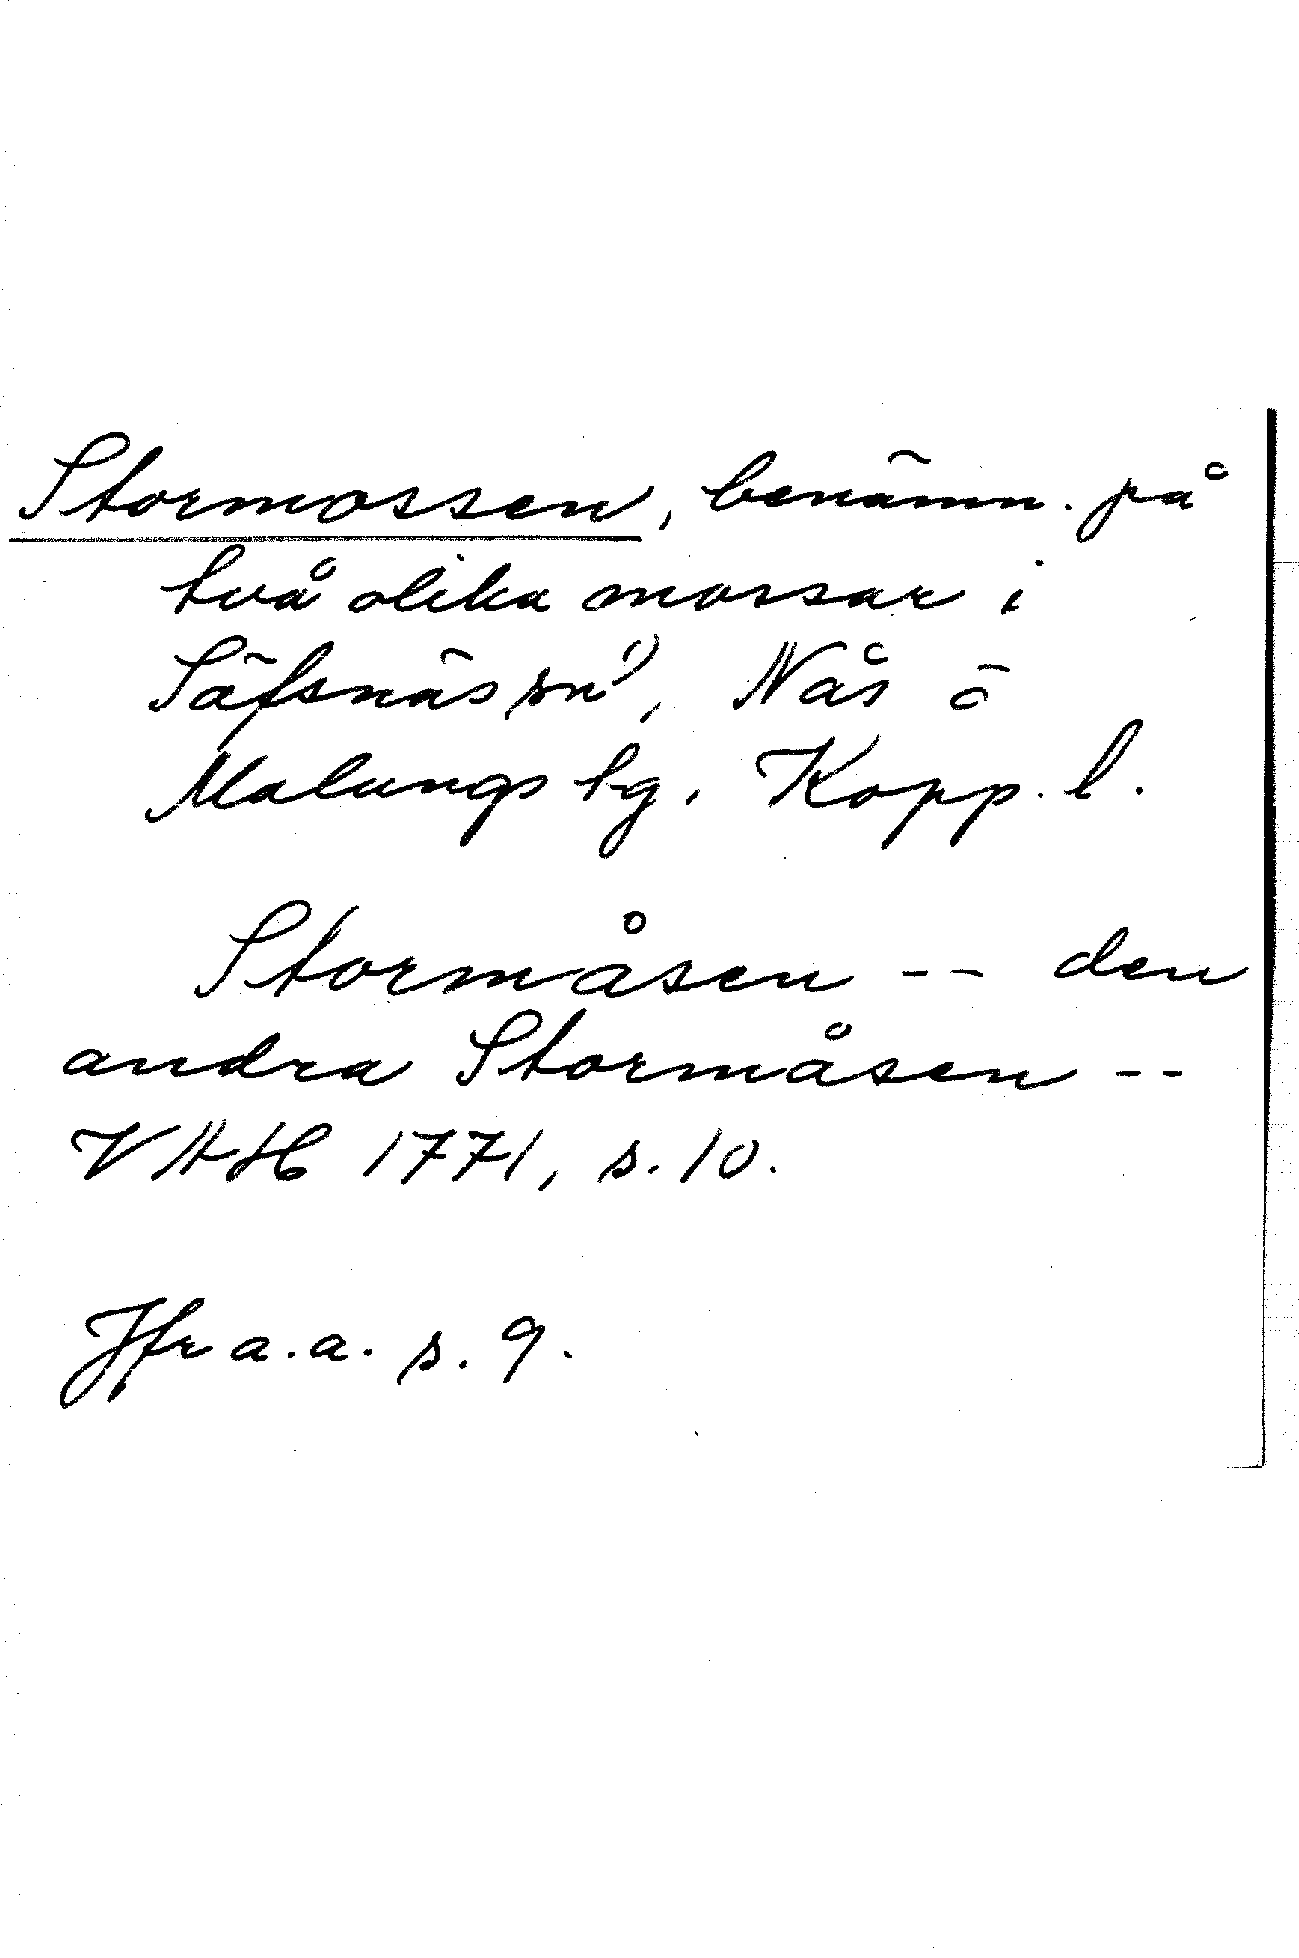 Stormossen, benämn. på
två olika mossar i
Säfsnäs sn¹⁾, Nås o
Malungs tg. Kopp. l.
Stormåsen -- den
andra Stormåsen --
VAH 1771, s. 10.
Jfr a.a. s. 9.